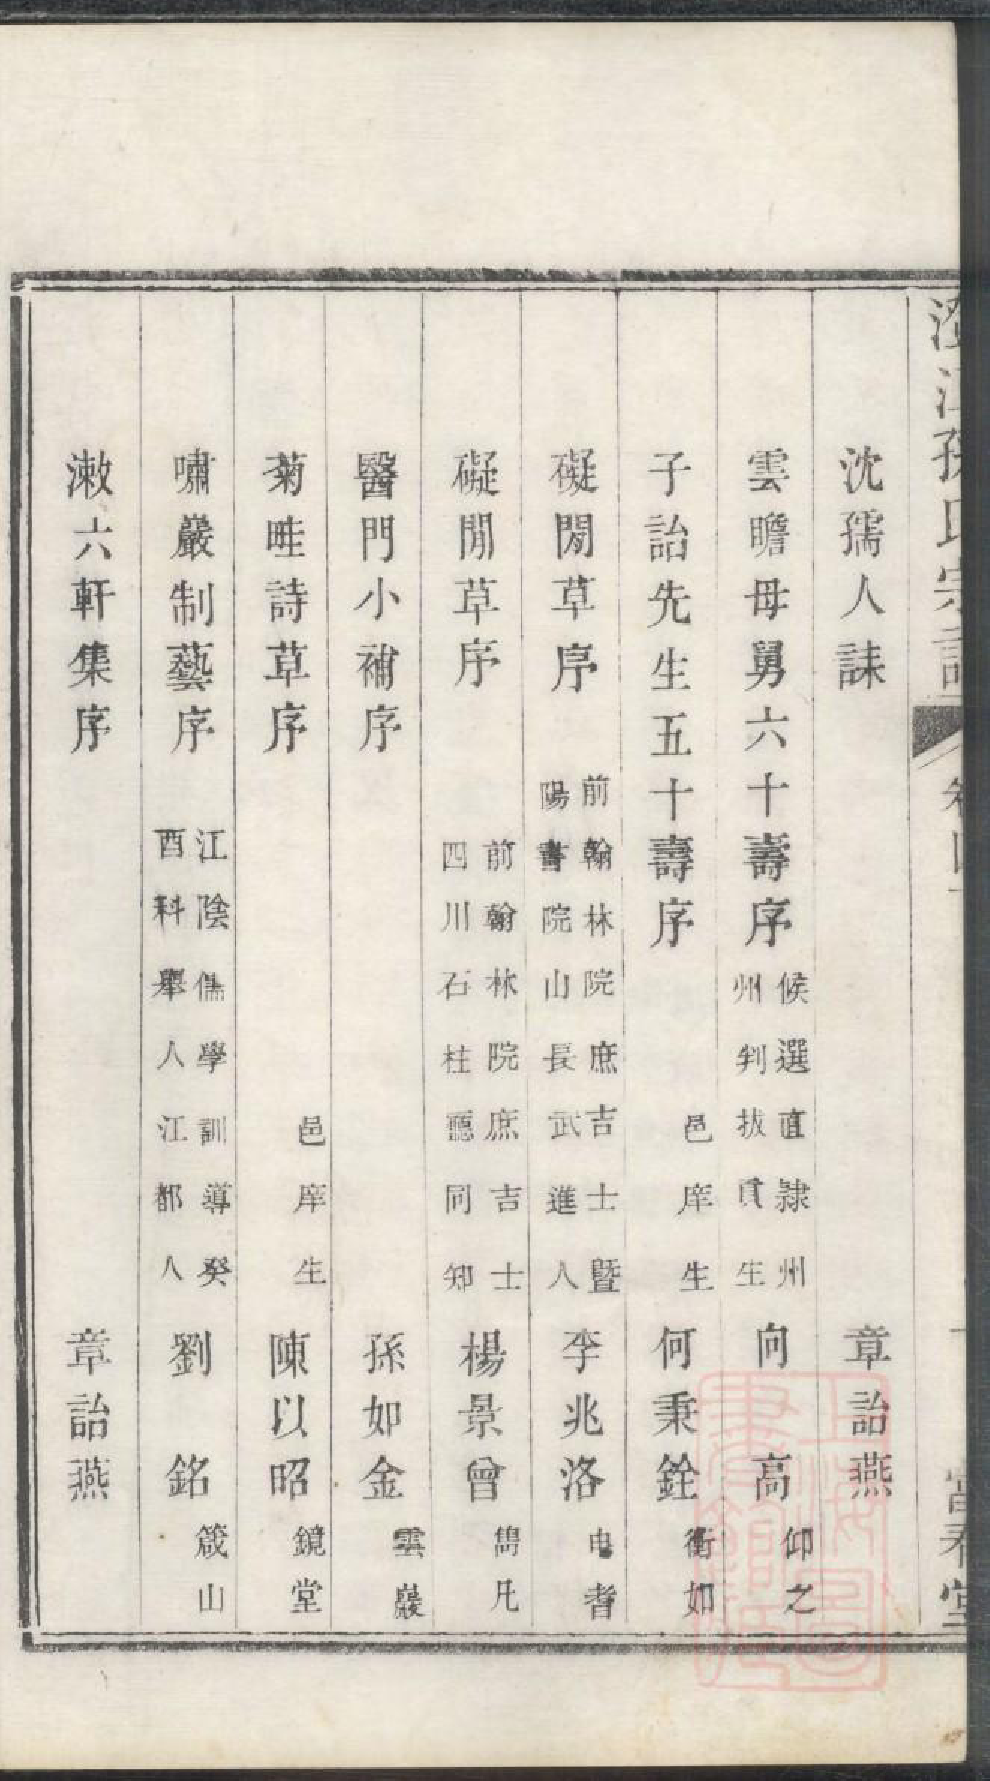 江孫氏宗譜 卷四 堂
沈孺人誄 章詒燕
雲瞻母舅六十壽序 候選直隸州州判拔貢生 向高 仰之
子詒先生五十壽序 邑庠生 何秉銓 衝如
礙閑草序 前翰林院庶吉士暨陽書院山長武進人 李兆洛 申耆
礙閒草序 前翰林院庶吉士四川石柱廳同知 楊景曾 雋凡
醫門小補序 孫如金 雲巖
菊畦詩草序 邑庠生 陳以昭 鏡堂
嘯巖制藝序 江陰儒學訓導癸酉科舉人江都人 劉銘 箴山
漱六軒集序 章詒燕
上海圖書館藏